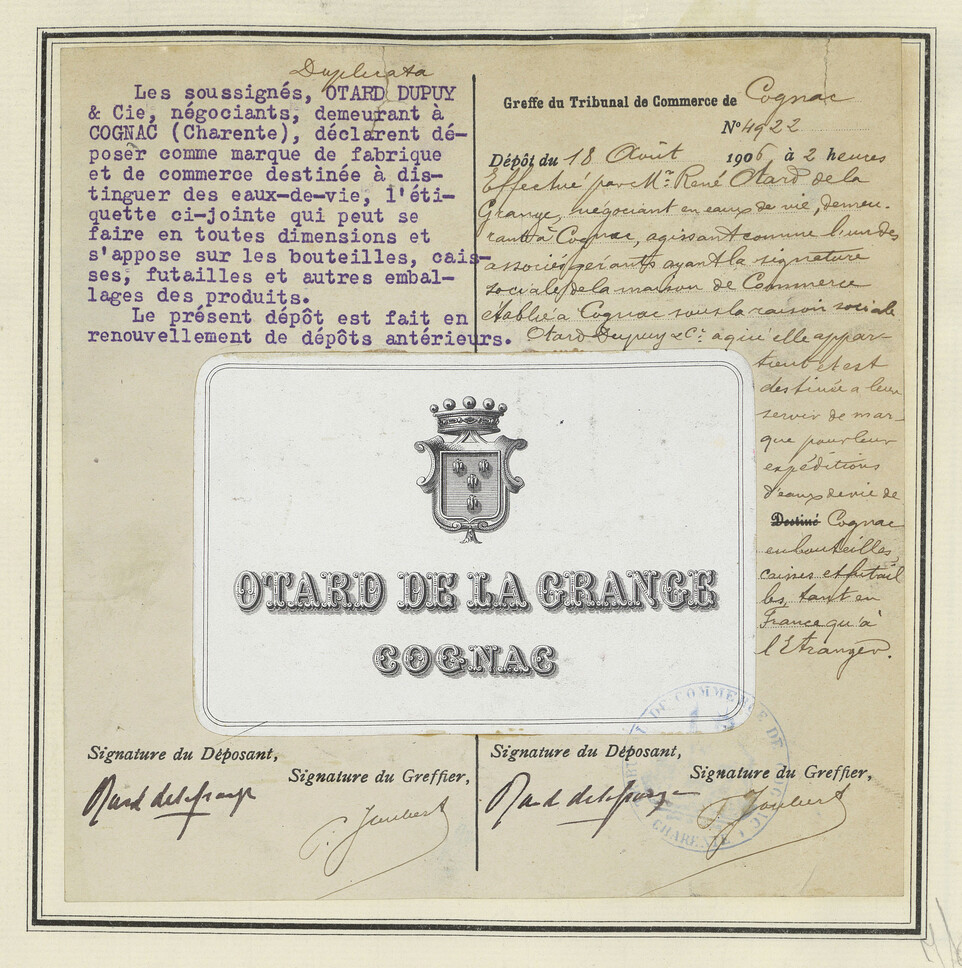 Duplicata
Les soussignés, OTARD DUPUY
& Cie, négociants, demeurant à
COGNAC (Charente), déclarent dé-
poser comme marque de fabrique
et de commerce destinée à dis-
tinguer des eaux-de-vie, l'éti-
quette ci-jointe qui peut se
faire en toutes dimensions et
s'appose sur les bouteilles, cais-
ses, futailles et autres embal-
lages des produits.
Le présent dépôt est fait en
renouvellement de dépôts antérieurs.
Greffe du Tribunal de Commerce de Cognac
No 4922
Dépôt du 18 Août 1906 à 2 heures
Effectué par Mr René Otard de la
Grange, négociant en eaux de vie, demeu-
rant à Cognac, agissant comme l'un des
associés gérants ayant la signature
sociale de la maison de Commerce
établie à Cognac sous la raison sociale
Otard Dupuy & Cie à qui elle appar-
tient et est
destinée a leur
servir de mar-
que pour leur
expéditions
d'eaux de vie de
Destiné Cognac
en bouteilles,
caisses et futail
les, tant en
France qu'à
l'Etranger.
OTARD DE LA GRANGE
COGNAC
Signature du Déposant,
Signature du Greffier,
Otard de la Grange
Joubert
Signature du Déposant,
Signature du Greffier,
Otard de la Grange
Joubert
DE COMMERCE DE COGNAC
CHARENTE